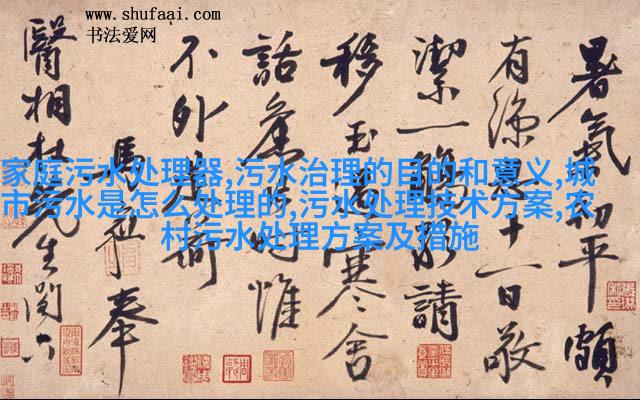 www.shufaai.com
书法爱网
暑氣初平頗
有涼思十一日敬
潔一觴奉請
移玉過寒舍
話舊時惟
不外是荷
奉
醫相杜先生閣下
家庭污水处理器,污水治理的目的和意义,城
市污水是怎么处理的,污水处理技术方案,农
村污水处理方案及措施